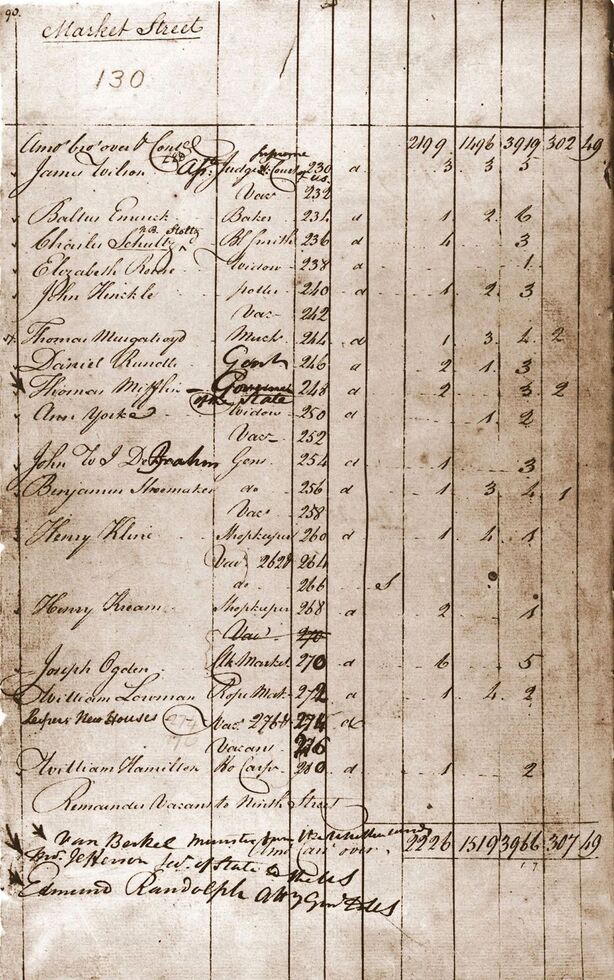 90.
Market Street
130
Amo. bro. over 2199 1496 3919 302 49
James Wilson Judge Supreme Court of US 230 a 3 3 5
Vac 232
Baltus Emrick Baker 234 a 1 2 6
Charles Schultz Bl Smith 236 a 4 3
Elizabeth Rome Widow 238 a 1
John Hinckle potter 240 a 1 2 3
Vac 242
Thomas Murgatroyd Mercht 244 a 1 3 4 2
Daniel Rundle Gent 246 a 2 1 3
Thomas Mifflin Governor of the State 248 a 2 3 2
Ann Yorke Widow 250 a 1 2
Vac 252
John W I De Brahm Gens 254 a 1 3
Benjamin Shoemaker do 256 a 1 3 4 1
Vac 258
Henry Kline Shopkeeper 260 a 1 4 1
Vac 262 & 264
do 266 S
Henry Kream Shopkeeper 268 a 2 1
Vac 270
Joseph Ogden Clk Market 270 a 6 5
William Lowman Rope Mak 272 a 1 4 2
New Houses Vac 276
Vacant 276
William Hamilton Ho Carp 280 a 1 2
Remainder Vacant to Ninth Street
Van Berkel minister from
Amo. car. over 2226 1519 3966 307 49
Ths. Jefferson Sec. of State to the US
17
Edmund Randolph Atty Genl